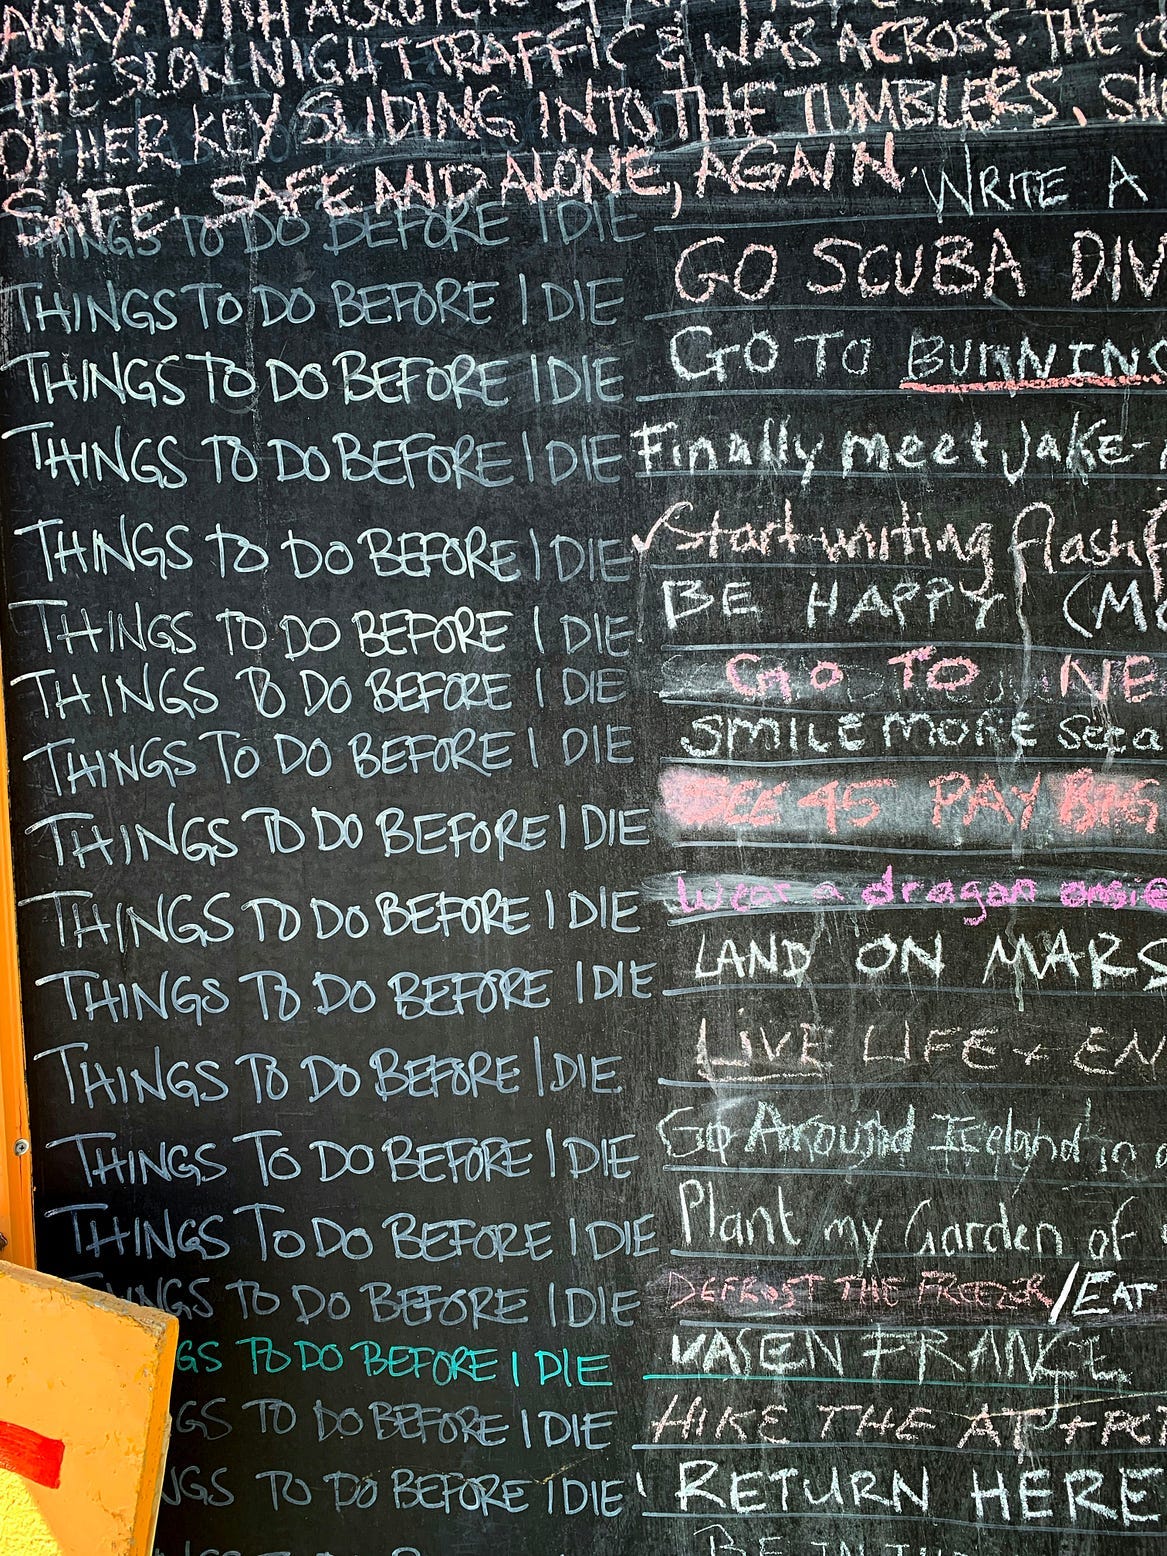 AWAY. WITH
THE SLOW NIGHT TRAFFIC & WAS ACROSS. THE
OF HER KEY SLIDING INTO THE TUMBLERS. SH
SAFE. SAFE AND ALONE, AGAIN.
THINGS TO DO BEFORE I DIE WRITE A
THINGS TO DO BEFORE I DIE GO SCUBA DIV
THINGS TO DO BEFORE I DIE GO TO BURNING
THINGS TO DO BEFORE I DIE Finally meet Jake-
THINGS TO DO BEFORE I DIE ✓Start writing flash f
THINGS TO DO BEFORE I DIE BE HAPPY (MO
THINGS TO DO BEFORE I DIE GO TO NE
THINGS TO DO BEFORE I DIE SMILE MORE
THINGS TO DO BEFORE I DIE SEE 45 PAY BIG
THINGS TO DO BEFORE I DIE Wear a dragon onsie
THINGS TO DO BEFORE I DIE LAND ON MARS
THINGS TO DO BEFORE I DIE LIVE LIFE + EN
THINGS TO DO BEFORE I DIE Go Around Iceland in a
THINGS TO DO BEFORE I DIE Plant my Garden of
NGS TO DO BEFORE I DIE DEFROST THE FREEZER/EAT
GS TO DO BEFORE I DIE FRANCE
GS TO DO BEFORE I DIE HIKE THE AT
NGS TO DO BEFORE I DIE RETURN HERE
BE IN